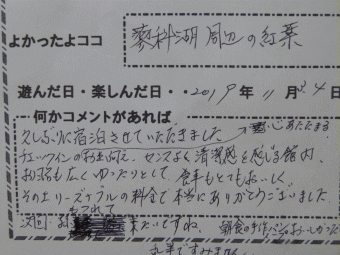 よかったよココ 蓼科湖周辺の紅葉
遊んだ日・楽しんだ日・・2019年11月3.4日
何かコメントがあれば
久しぶりに宿泊させていただきました 心あたたまる
チェックインのお出迎え、センスよく清潔感を感じる館内、
お部屋も広くゆったりとして、食事もとてもおいしく、
その上リーズナブルの料金で本当にありがとうございました。
次回 もつれて 来たいですね。 朝食の手作りパンもおいしかった
すみません